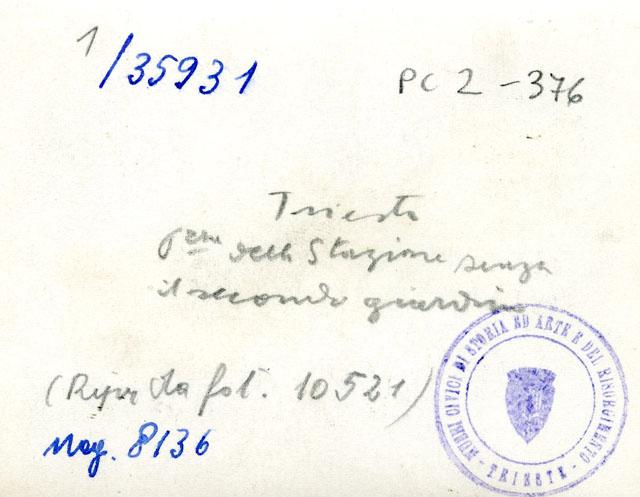 1/35931
PC 2-376
Trieste
della Stazione senza
il secondo giardino
(Ripr da fot. 10521)
Neg. 8136
MUSEI CIVICI DI STORIA ED ARTE E DEL RISORGIMENTO
- TRIESTE -